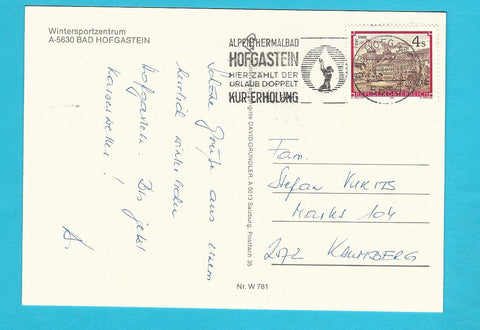 Wintersportzentrum
A-5630 BAD HOFGASTEIN
ALPENTHERMALBAD
HOFGASTEIN
HIER ZÄHLT DER
URLAUB DOPPELT
KUR·ERHOLUNG
4 S
REPUBLIK ÖSTERREICH
Schöne Grüße aus einem
herrlich winterlichen
Hofgastein. Bis jetzt
Kaiserwetter!
Brigitte DAVID-GRÜNDLER A-5013 Salzburg, Postfach 35
Fam.
Stefan
Markt 104
2572 KAUMBERG
Nr. W 781